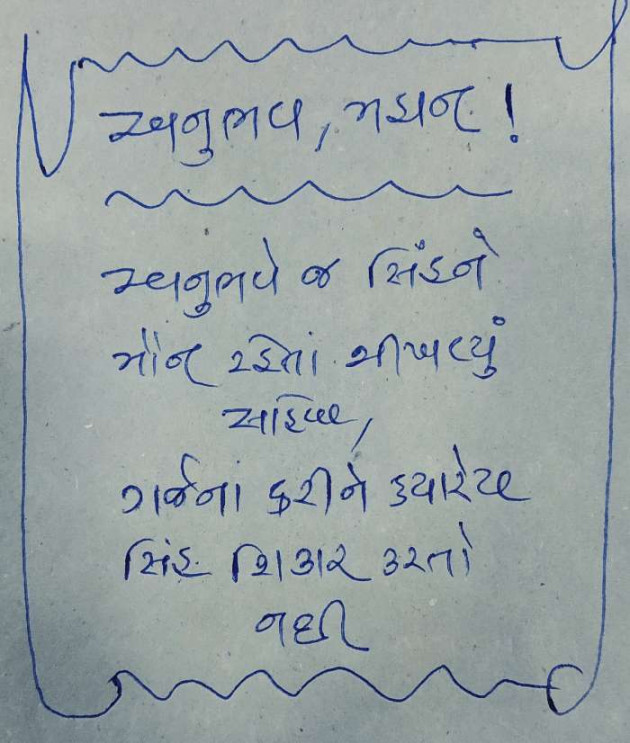 અનુભવ, મહાન !
અનુભવે જ સિંહને
મૌન રહેતાં શીખવ્યું
સાહિબ,
ગર્જનાં કરીને ક્યારેય
સિંહ શિકાર કરતો
નથી